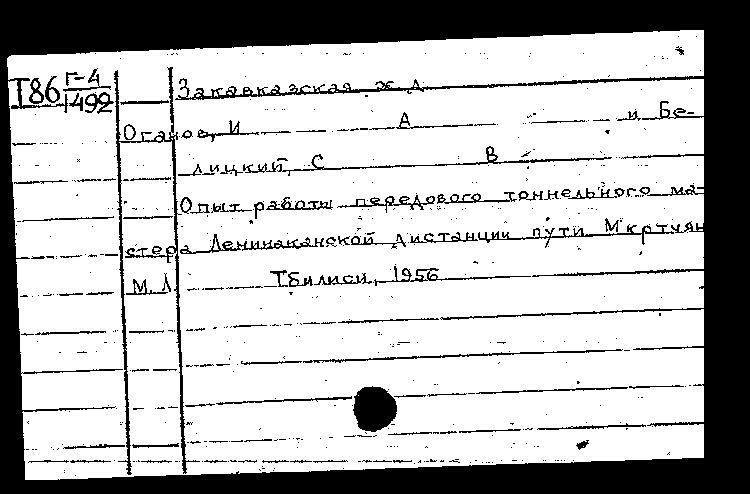 Т86 Г-4
1492
Закавказская ж. д.
Оганов, И А и Бе-
лицкий, С В
Опыт работы передового тоннельного ма-
стера Ленинаканской дистанции пути Мкртчян
М. Л. Тбилиси, 1956